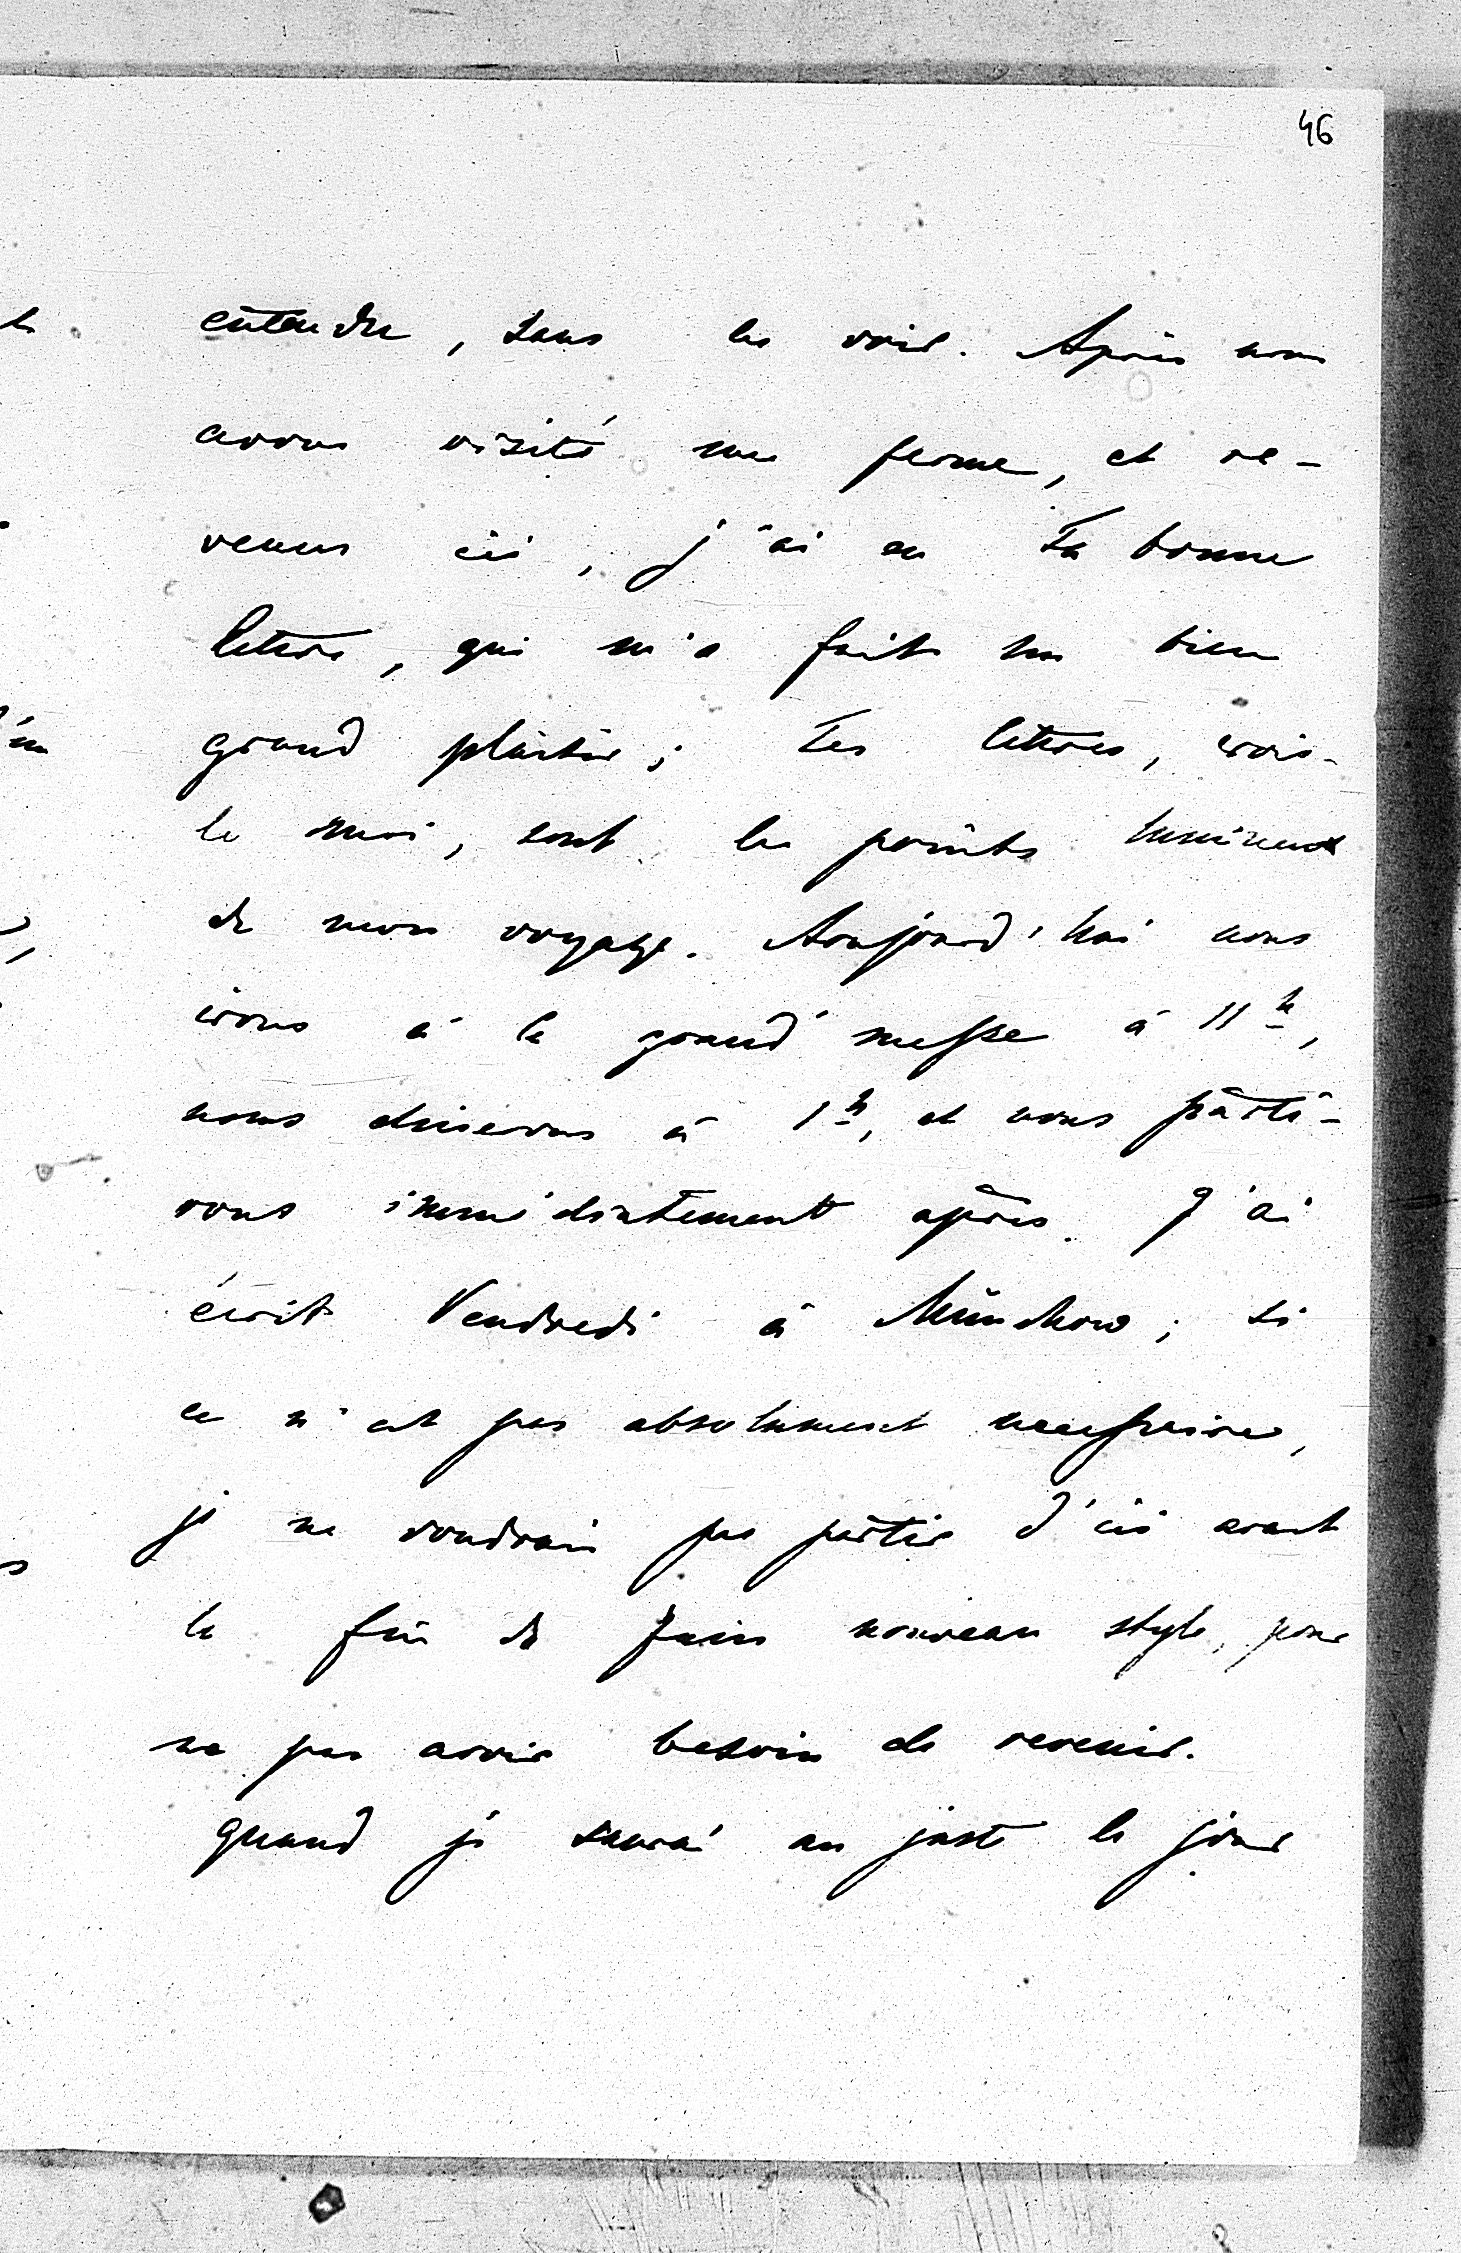 46
entendre, sans les voir. Après nous
avons visité une ferme, et re-
venus ici, j'ai eu Ta bonne
lettre, qui m'a fait un bien
grand plaisir; Tes lettres, crois-
le moi, sont les points lumineux
de mon voyage. Aoujourd'hui nous
irons à la grand' messe à 11 h,
nous dinerons à 1 h, et nous parti-
rons immédiatement après. J'ai
écrit Vendredi à Münchow; si
ce n'est pas absolument necessaire,
je ne voudrais pas partir d'ici avant
la fin de Juin nouveau style, pour
ne pas avoir besoin de revenir.
quand je saurai au juste le jour